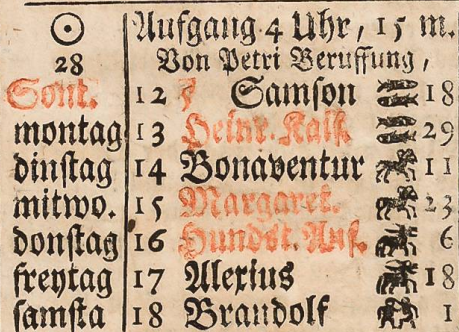 ☉ Aufgang 4 Uhr, 15 m.
28 Von Petri Beruffung,
Sont. 12 5 Samson 18
montag 13 Heinr. Kais. 29
dinstag 14 Bonaventur 11
mitwo. 15 Margaret. 23
donstag 16 Hundst. Anf. 6
freytag 17 Alexius 18
samsta 18 Brandolf 1